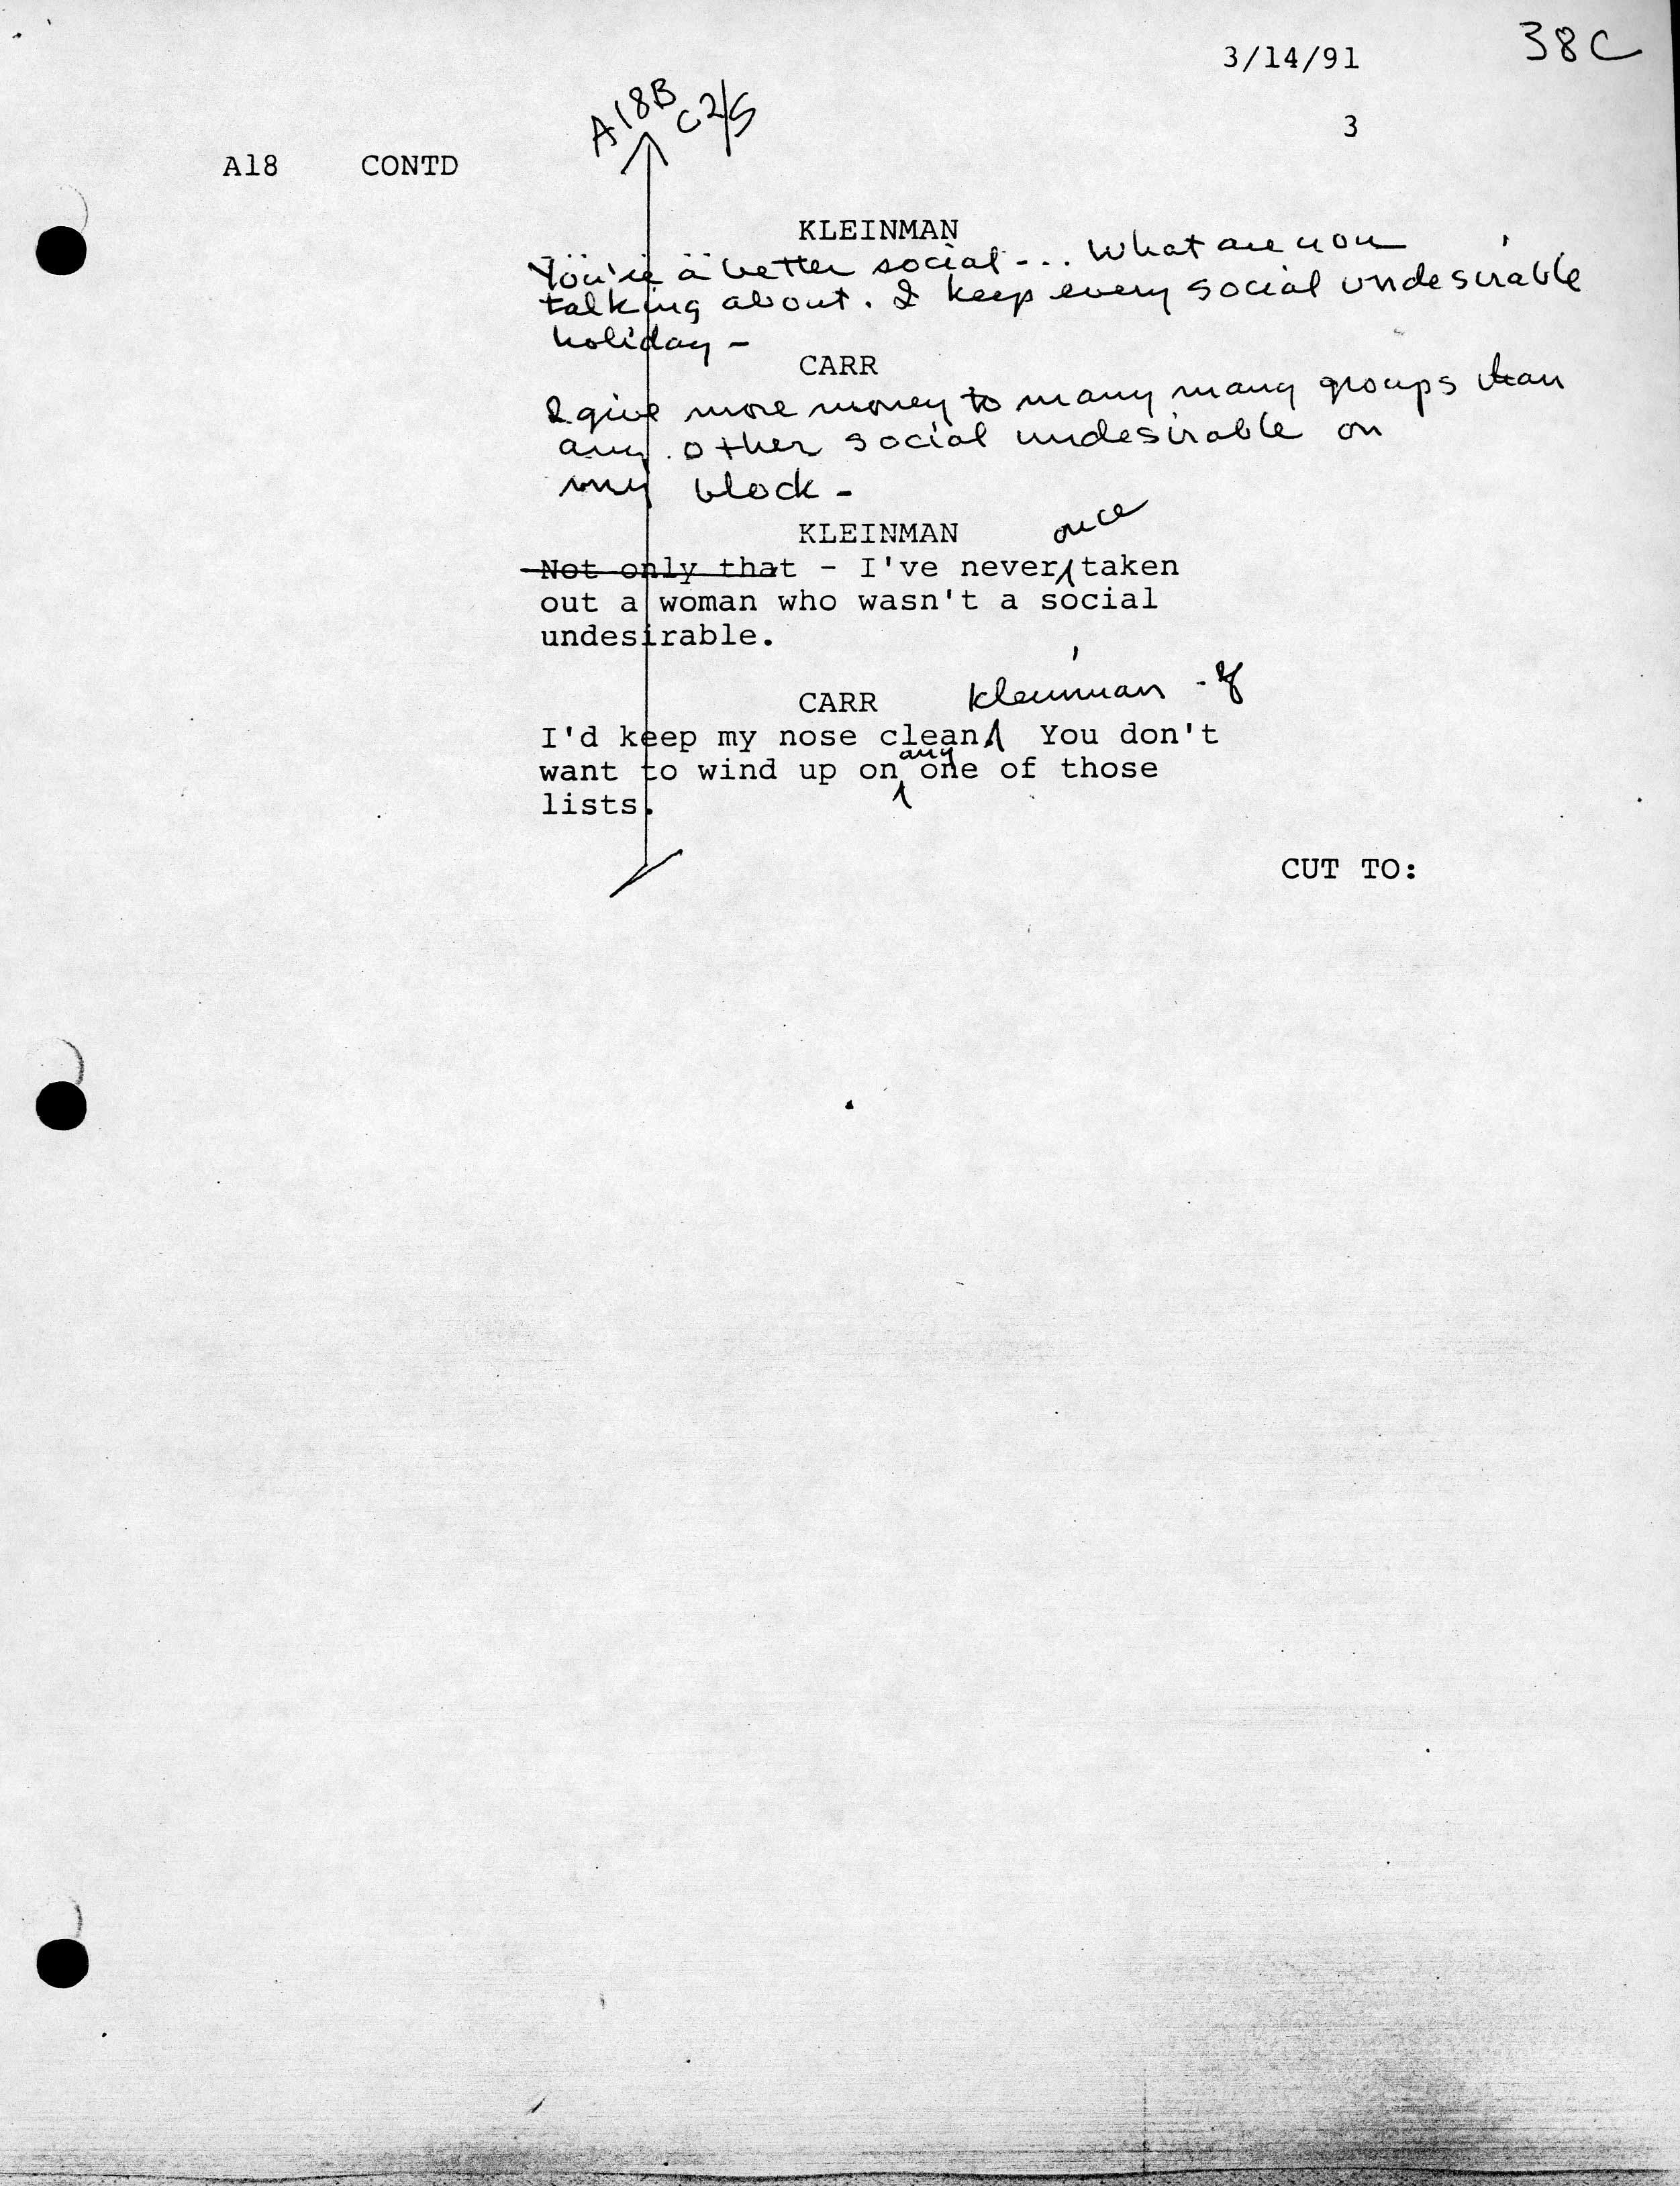 3/14/91 38C
3
A18B
C2/S
A18 CONTD
KLEINMAN
You're a better social --- What are you
talking about. I keep every social undesirable
holiday -
CARR
I give more money to many many groups than
any other social undesirable on
my block -
KLEINMAN
once
Not only that - I've never taken
out a woman who wasn't a social
undesirable.
CARR Kleinman -
I'd keep my nose clean. You don't
any
want to wind up on one of those
lists.
CUT TO: